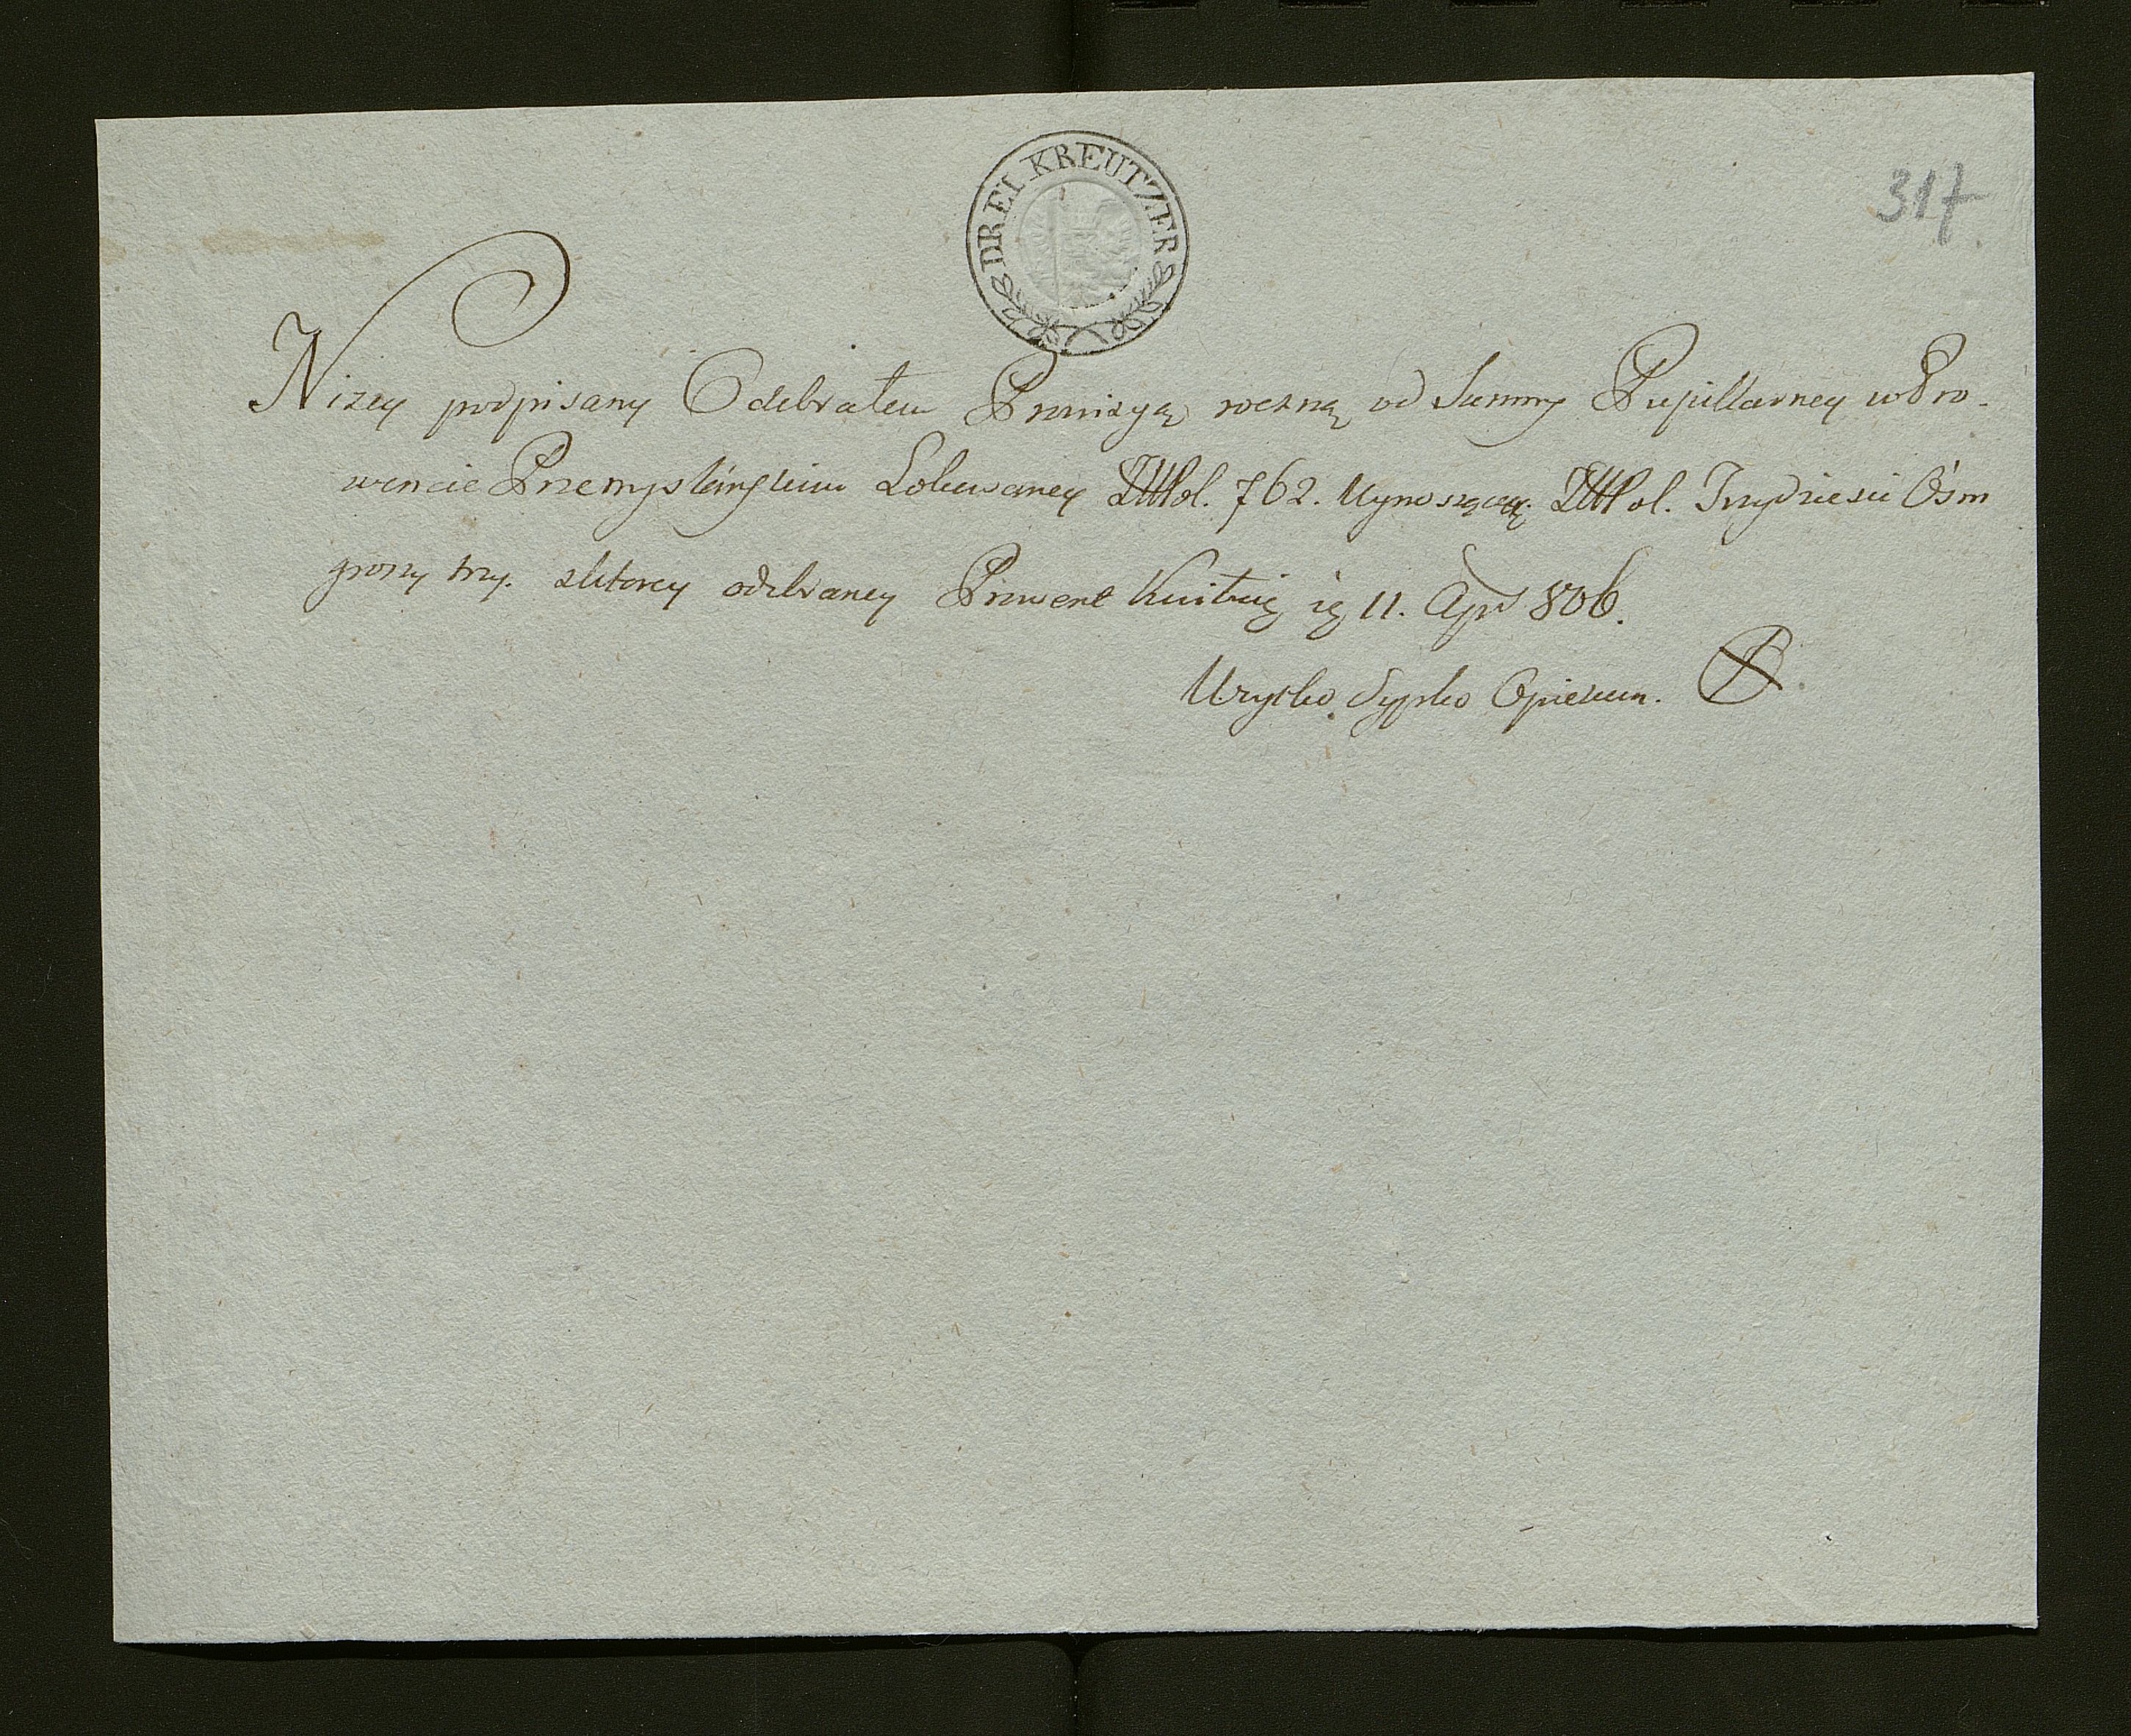 DREI KREUTZER
317
Nizey podpisany Odebrałem Prowizyą roczną od Summy Pupillarney w Pro-
wencie Przemyslińskim Lokowaney ZłPol. 762. Wynoszącą ZłPol. Trzydziesci Ośm
groszy trzy. z ktorey odebraney Prowent Kwituię ię 11. Apr 806.
Hryćko Sypko Opiekun.